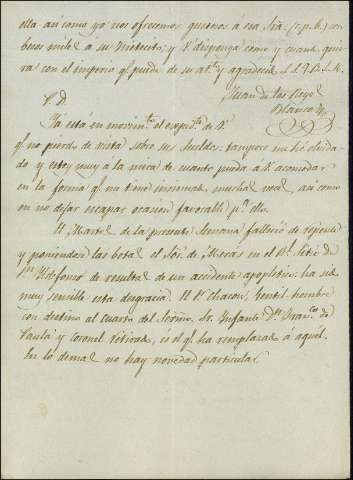 ella asi como yo nos ofrecemos gustosos á esa Sra. (c.p.b.) con
besos mil á su Nietecito; y V. disponga como y cuanto quie-
ra con el imperio q.e puede de su at.to y agradecido S.S.Q.B.S.M.
Juan de los Reyes
Blanco
P.D.
Ya está en movim.to el exped.te de V.
q.e no pierdo de vista sobre sus sueldos: tampoco me hé olvida-
do y estoy muy á la mira de cuanto pueda á V. acomodar
en la forma q.e me tiene insinuado muchas veces, asi como
en no dejar escapar ocasion favorable p.a ello.
El Martes de la presente Semana falleció de repente
y poniendose las botas el Sor. de Meras en el R.l Sitio de
S.n Ildefonso de resultas de un accidente apopletico: ha sido
muy sensible esta desgracia. El Sr. Chacon, Gentil hombre
con destino al cuarto del Sermo. Sr. Infante D.n Fran.co de
Paula y Coronel retirado, es el q.e ha remplazado á aquel.
En lo demas no hay novedad particular.